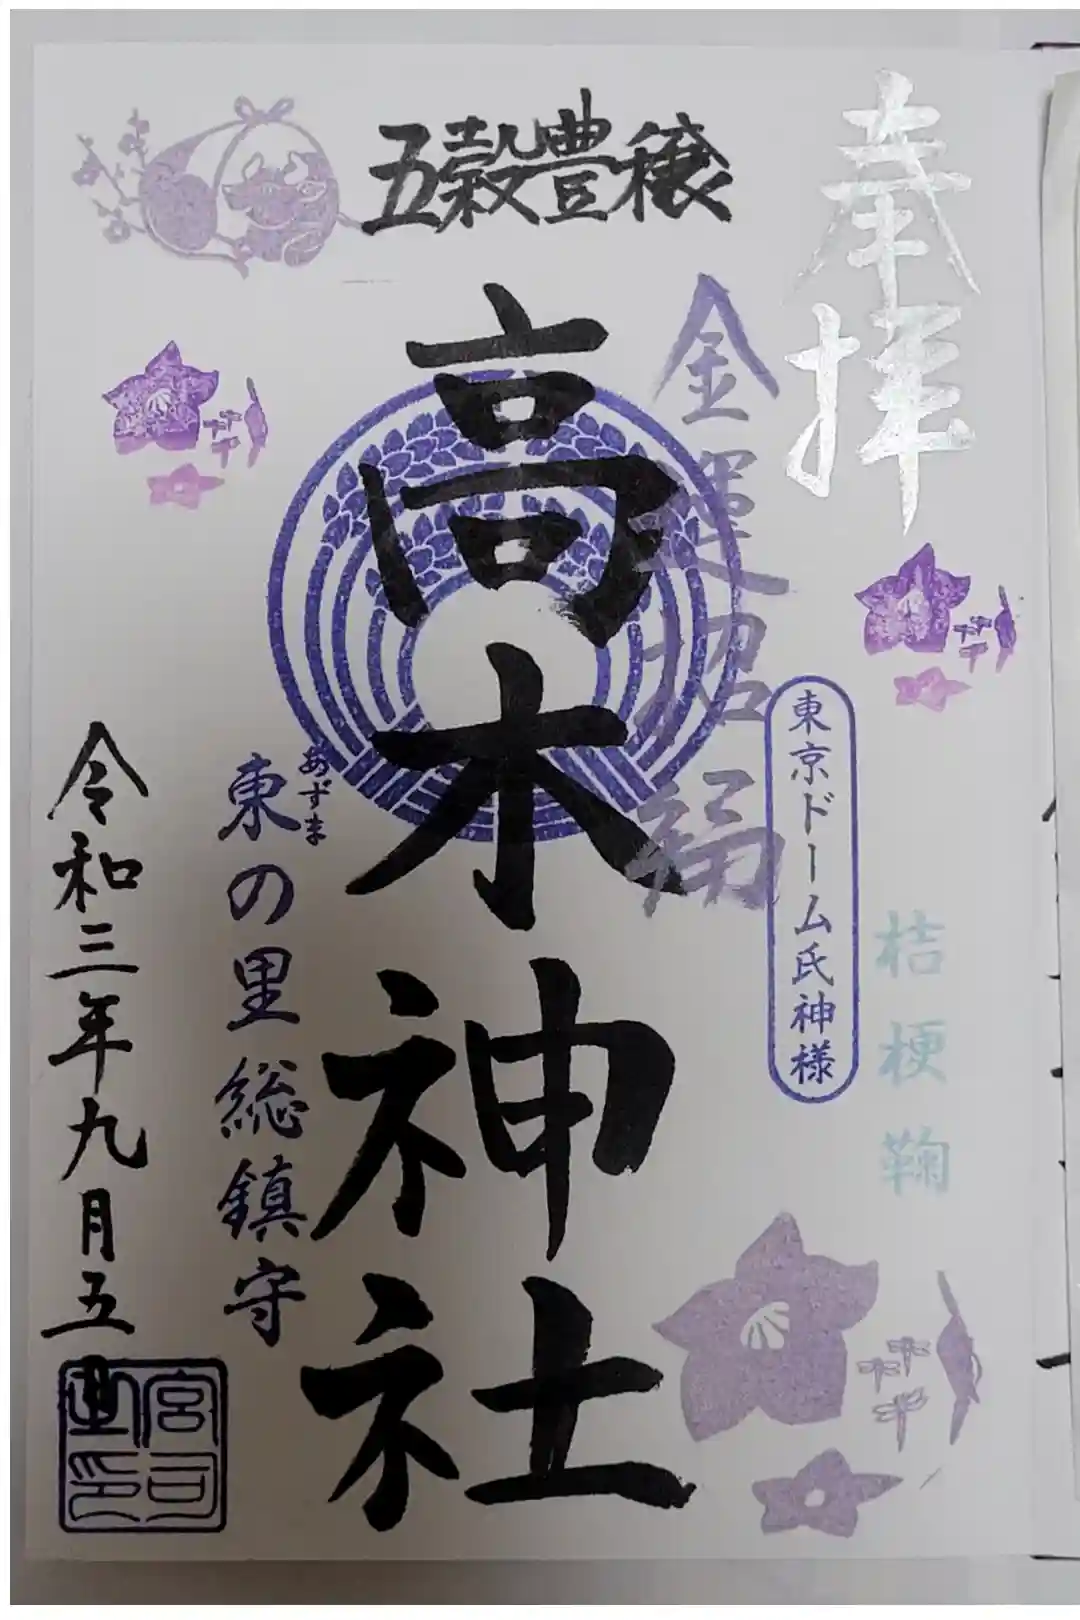 奉拝
桔梗鞠
東京ドーム氏神様
金運招福
五穀豊穣
高木神社
あずま
東の里総鎮守
令和三年九月五日
宮司之印